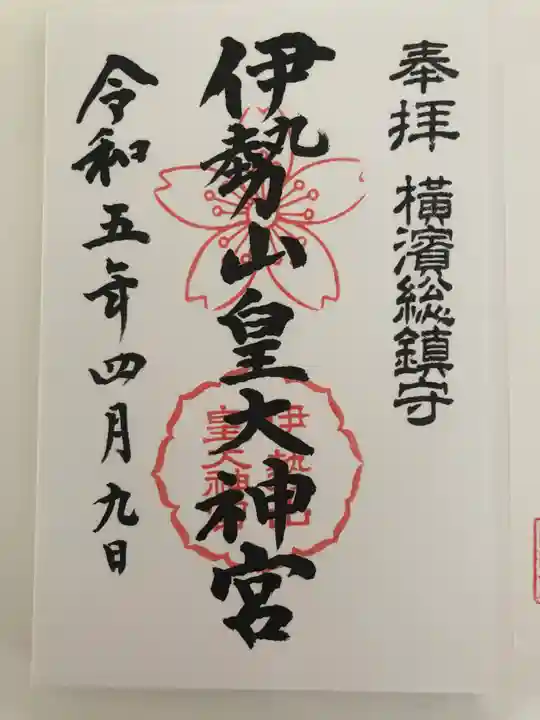 奉拝 横濱総鎮守
伊勢山皇大神宮
伊勢山
皇大神宮
令和五年四月九日